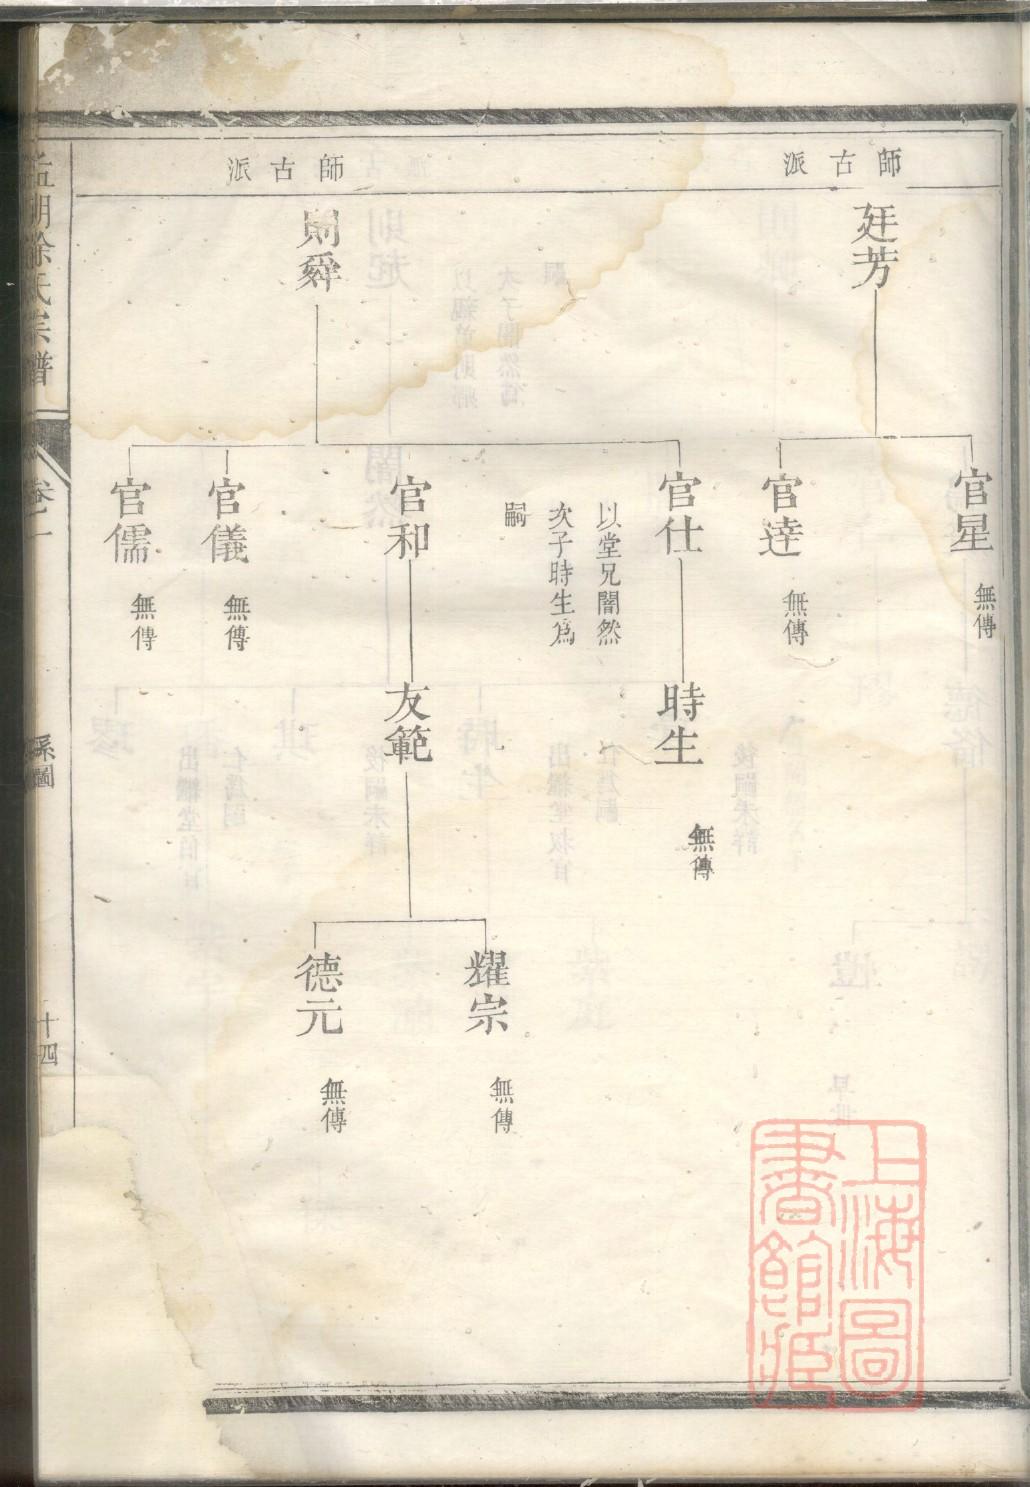 師古派
廷芳
官星
無傳
官達
無傳
師古派
則舜
官仕
以堂兄闇然
次子時生爲
嗣
時生
無傳
官和
友範
耀宗
無傳
德元
無傳
官儀
無傳
官儒
無傳
湖徐氏宗譜
卷一
系圖
十四
上海圖書館藏